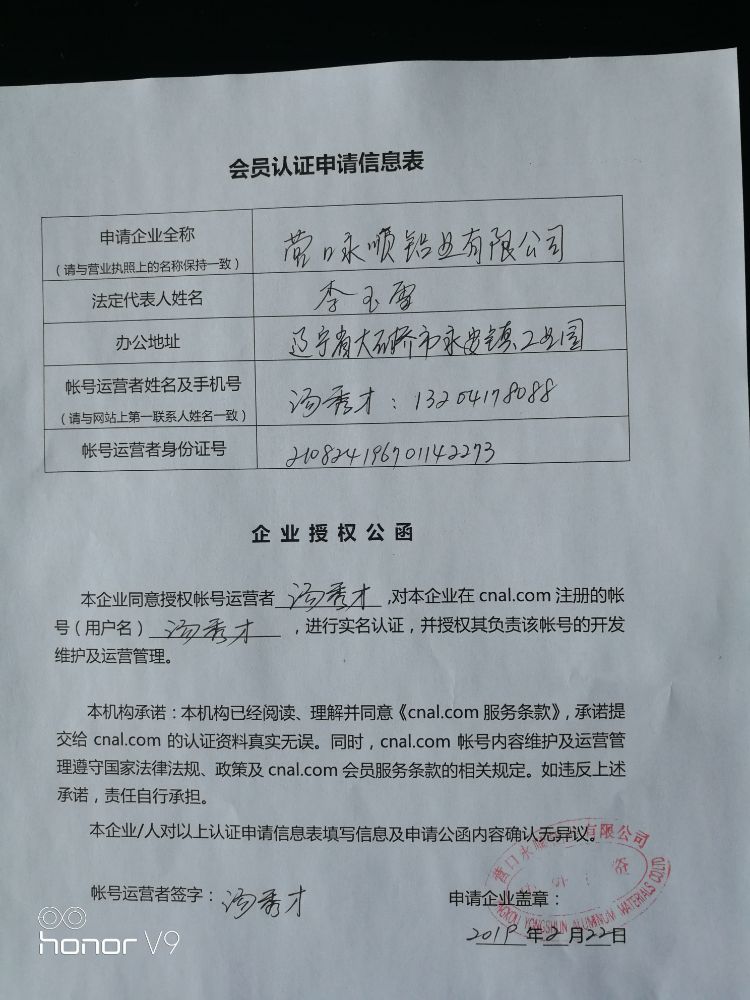 会员认证申请信息表
申请企业全称
（请与营业执照上的名称保持一致）
营口永顺铝业有限公司
法定代表人姓名
李玉雷
办公地址
辽宁省大石桥市永安镇工业园
帐号运营者姓名及手机号
（请与网站上第一联系人姓名一致）
汤秀才：13204178088
帐号运营者身份证号
210824196701142273
企业授权公函
本企业同意授权帐号运营者 汤秀才 ,对本企业在 cnal.com 注册的帐
号（用户名） 汤秀才 ，进行实名认证，并授权其负责该帐号的开发
维护及运营管理。
本机构承诺：本机构已经阅读、理解并同意《cnal.com 服务条款》，承诺提
交给 cnal.com 的认证资料真实无误。同时，cnal.com 帐号内容维护及运营管
理遵守国家法律法规、政策及 cnal.com 会员服务条款的相关规定。如违反上述
承诺，责任自行承担。
本企业/人对以上认证申请信息表填写信息及申请公函内容确认无异议。
帐号运营者签字：汤秀才
申请企业盖章：
2019 年 2 月 22 日
营口永顺 有限公司
YONGSHUN ALUMINUM MATERIALS CO.LTD
honor V9